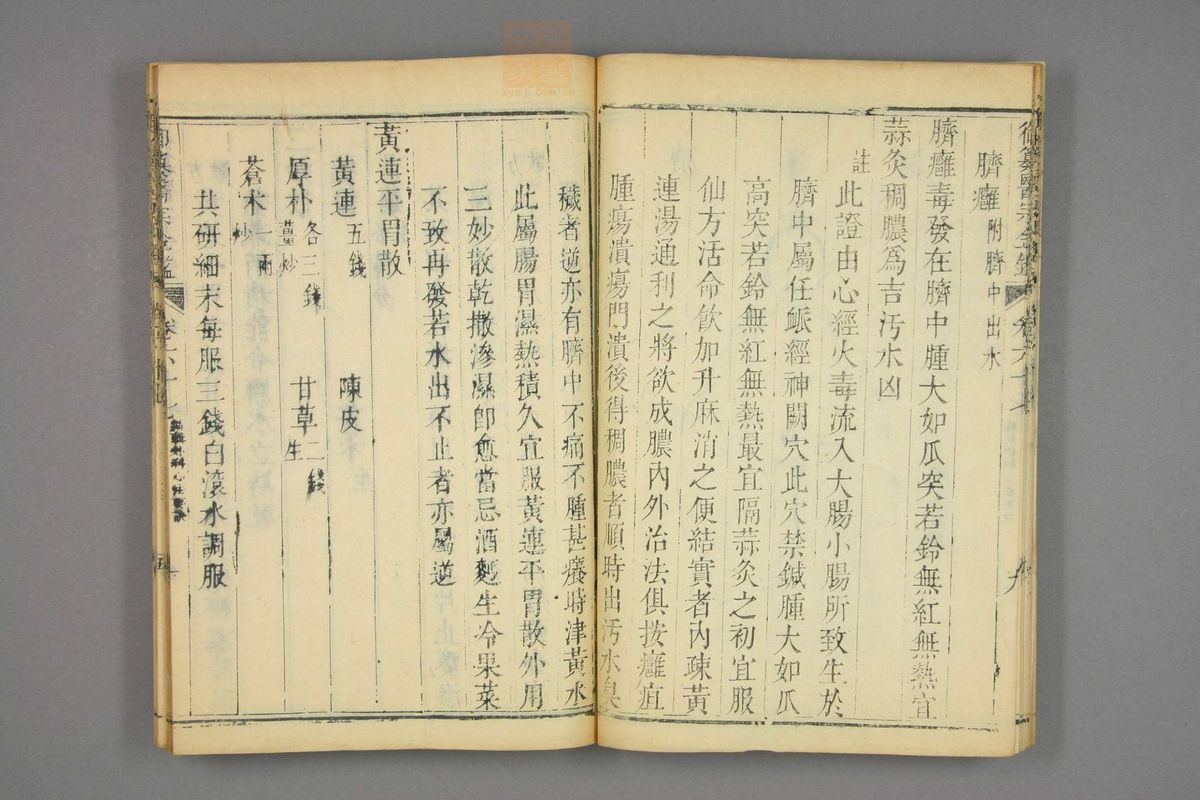 臍癰附臍中出水
臍癰毒發在臍中腫大如瓜突若鈴無紅無熱宜
蒜灸稠膿爲吉汚水凶
註
此證由心經火毒流入大腸小腸所致生於
臍中屬任脈經神闕穴此穴禁鍼腫大如瓜
高突若鈴無紅無熱最宜隔蒜灸之初宜服
仙方活命飲加升麻消之便結實者內疎黃
連湯通利之將欲成膿內外治法俱按癰疽
腫瘍潰瘍門潰後得稠膿者順時出汚水臭
穢者逆亦有臍中不痛不腫甚癢時津黃水
此屬腸胃濕熱積久宜服黃連平胃散外用
三妙散乾撒滲濕卽愈當忌酒麪生冷果菜
不致再發若水出不止者亦屬逆
黃連平胃散
黃連五錢 陳皮
厚朴各三錢薑炒 甘草二錢生
蒼朮一兩炒
共研細末每服三錢白滾水調服